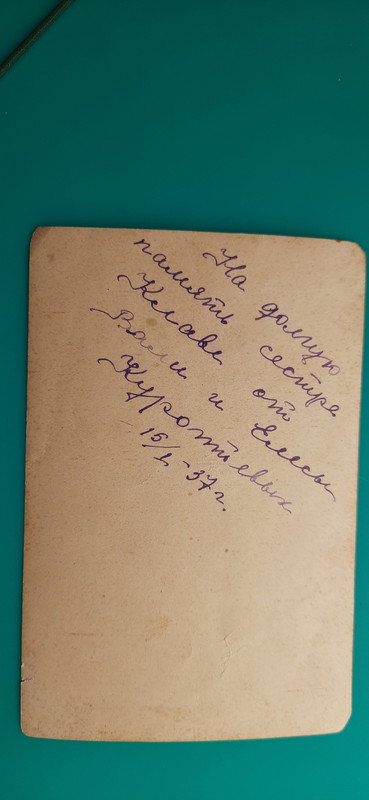 На долгую
память сестре
Клаве от
Вали и Елесы
Куротьевых
15/I-37г.